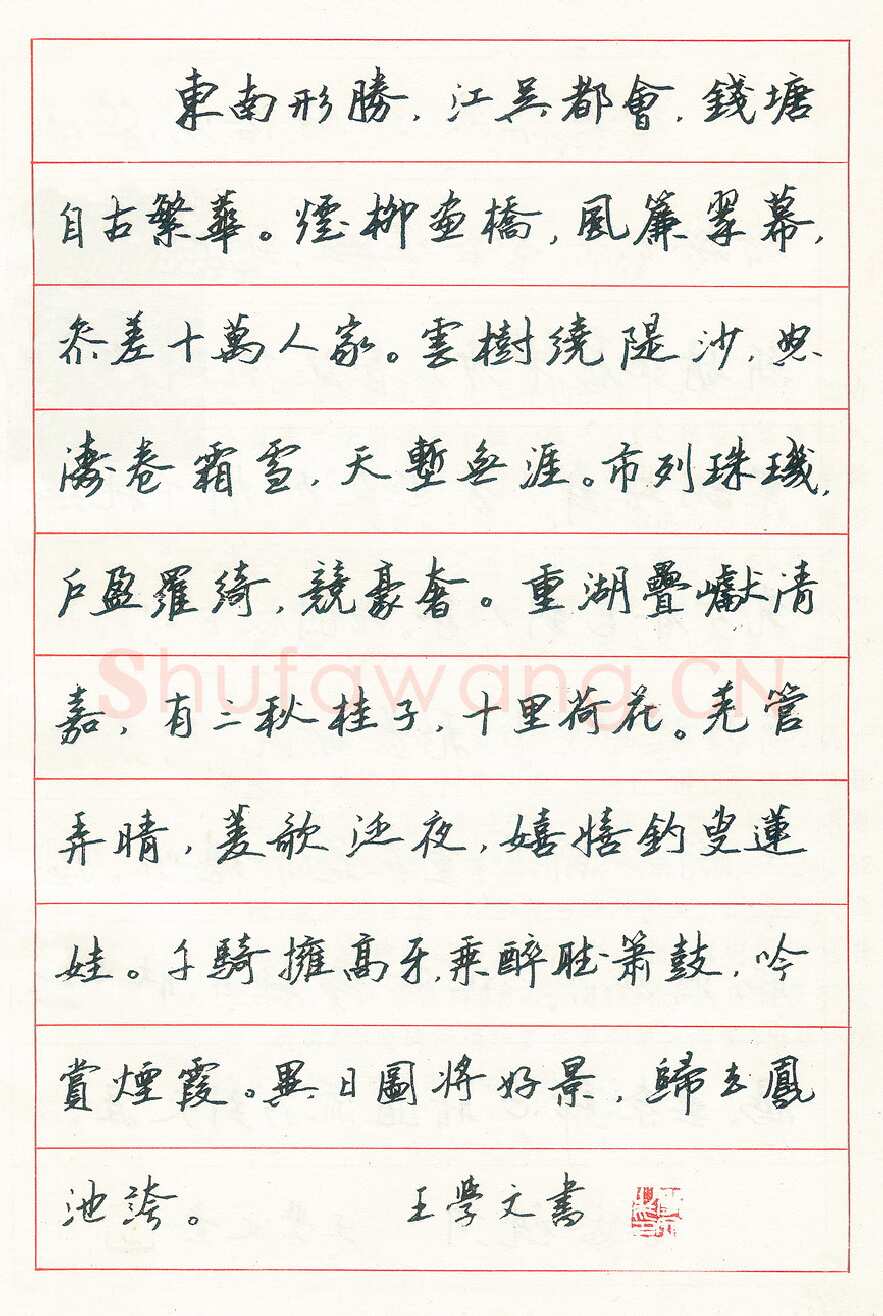 東南形勝，江吳都會，錢塘
自古繁華。煙柳畫橋，風簾翠幕，
參差十萬人家。雲樹繞隄沙，怒
濤卷霜雪，天塹無涯。市列珠璣，
戶盈羅綺，競豪奢。重湖疊巘清
嘉，有三秋桂子，十里荷花。羌管
弄晴，菱歌泛夜，嬉嬉釣叟蓮
娃。千騎擁高牙，乘醉聽簫鼓，吟
賞煙霞。異日圖將好景，歸去鳳
池誇。
王學文書
Shufawang.CN